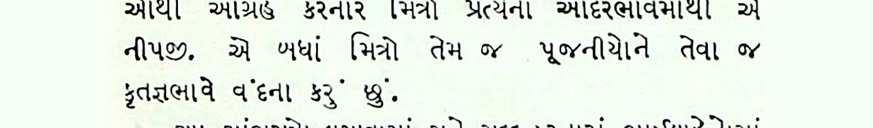 આથી આગ્રહ કરનાર મિત્રો પ્રત્યેના આદરભાવમાંથી એ
નીપજી. એ બધાં મિત્રો તેમ જ પૂજનીયોને તેવા જ
કૃતજ્ઞભાવે વંદના કરું છું.